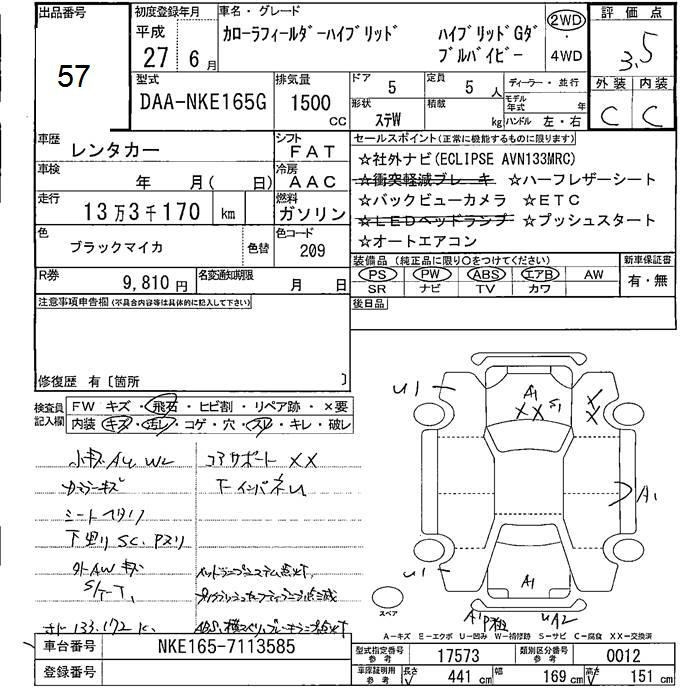 出品番号
57
初度登録年月
平成
27 6月
車名・グレード
カローラフィールダーハイブリッド ハイブリッドGダブルバイビー
2WD・4WD
評価点
3.5
外装 内装
C C
型式
DAA-NKE165G
排気量
1500 CC
ドア 5
定員 5 人
形状 ステW
積載 kg
ディーラー・並行
モデル年式 年
ハンドル 左・右
車歴 レンタカー
シフト FAT
車検 年 月( 日)
冷房 AAC
走行 13万3千170 km
燃料 ガソリン
色 ブラックマイカ 色替
色コード 209
R券 9,810円
名変通知期限 月 日
セールスポイント(正常に機能するものに限ります)
☆社外ナビ(ECLIPSE AVN133MRC)
☆衝突軽減ブレーキ ☆ハーフレザーシート
☆バックビューカメラ ☆ETC
☆LEDヘッドランプ ☆プッシュスタート
☆オートエアコン
装備品(純正品に限り○をつけてください) 新車保証書
PS PW ABS エアB AW 有・無
SR ナビ TV カワ
後日品
注意事項申告欄(不具合内容等は具体的に記入して下さい)
修復歴 有〔箇所 〕
検査員記入欄
FW キズ・飛石・ヒビ割・リペア跡・×要
内装 キズ・汚レ・コゲ・穴・スレ・キレ・破レ
小キズ A4 W2
コアサポート XX
シートヘタリ
下廻り SC.
外AWキズ
S/T-T,
133,172 K.
U1
A1
XX
S1
X
X
A1
U1
A1
A1
UA2
スペア
A-キズ E-エクボ U-凹み W-補修跡 S-サビ C-腐食 XX-交換済
車台番号 NKE165-7113585
登録番号
型式指定番号 参考 17573
類別区分番号 参考 0012
車庫証明用 参考 長さ 441 cm 幅 169 cm 高さ 151 cm